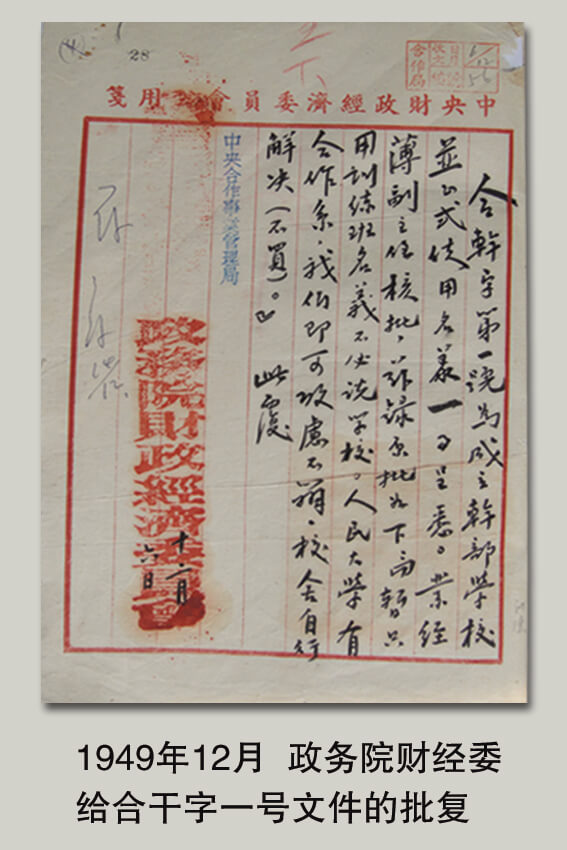 28
合作局
中央財政經濟委員會公用箋
合幹字第一號為成立幹部學校
並正式使用名義一事呈悉。業經
薄副主任核批，茲錄原批如下：「暫只
用訓練班名義不必說學校。人民大學有
合作系，我们即可攷慮不辦，校舍自行
解决（不買）。」此覆
中央合作事業管理局
政務院財政經濟委員會
十二月
六日
1949年12月 政务院财经委
给合干字一号文件的批复